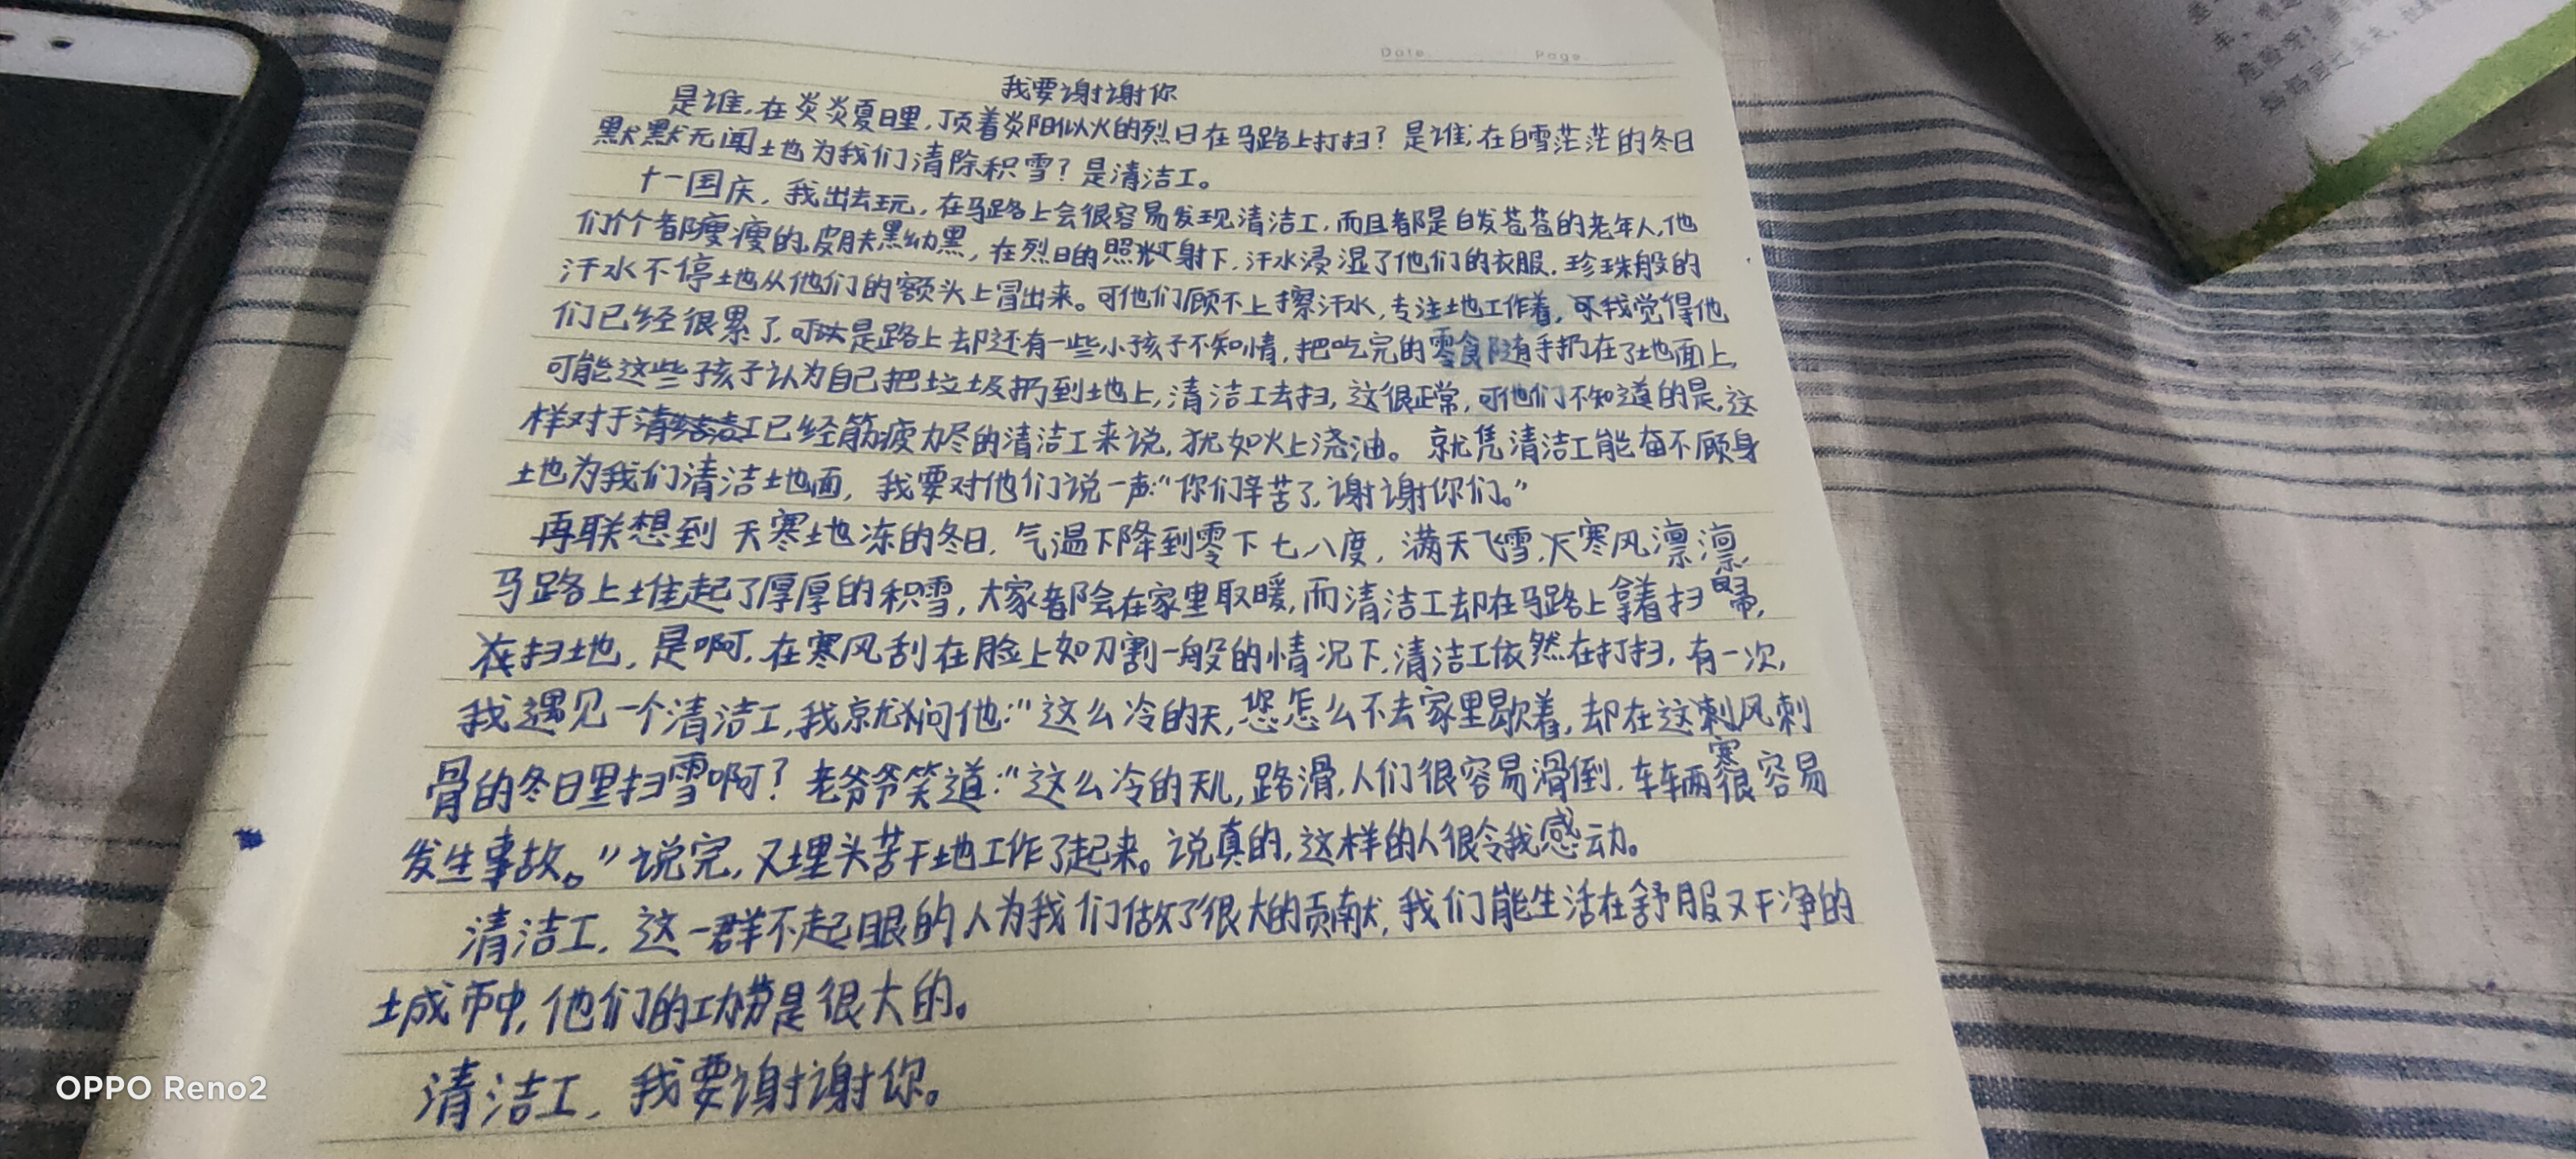 Date
Page
我要谢谢你
是谁,在炎炎夏日里,顶着炎阳似火的烈日在马路上打扫?是谁,在白雪茫茫的冬日
默默无闻土地为我们清除积雪?是清洁工。
十一国庆,我出去玩,在马路上会很容易发现清洁工,而且都是白发苍苍的老年人,他
们个个都瘦瘦的,皮肤黑幼黑,在烈日的照射下,汗水浸湿了他们的衣服,珍珠般的
汗水不停地从他们的额头上冒出来。可他们顾不上擦汗水,专注地工作着,我觉得他
们已经很累了,可是路上却还有一些小孩子不知情,把吃完的零食随手扔在了地面上,
可能这些孩子认为自己把垃圾扔到地上,清洁工去扫,这很正常,可他们不知道的是,这
样对于已经筋疲力尽的清洁工来说,犹如火上浇油。就凭清洁工能奋不顾身
地为我们清洁地面,我要对他们说一声:“你们辛苦了,谢谢你们。”
再联想到天寒地冻的冬日,气温下降到零下七八度,满天飞雪,天寒风凛凛,
马路上堆起了厚厚的积雪,大家都会在家里取暖,而清洁工却在马路上拿着扫帚,
在扫地,是啊,在寒风刮在脸上如刀割一般的情况下,清洁工依然在打扫,有一次,
我遇见一个清洁工,我就问他:“这么冷的天,您怎么不去家里歇着,却在这寒风刺
骨的冬日里扫雪啊?老爷爷笑道:“这么冷的天儿,路滑,人们很容易滑倒,车辆很容易
发生事故。”说完,又埋头苦干地工作了起来。说真的,这样的人很令我感动。
清洁工,这一群不起眼的人为我们做了很大的贡献,我们能生活在舒服又干净的
城市中,他们的功劳是很大的。
清洁工,我要谢谢你。
OPPO Reno2